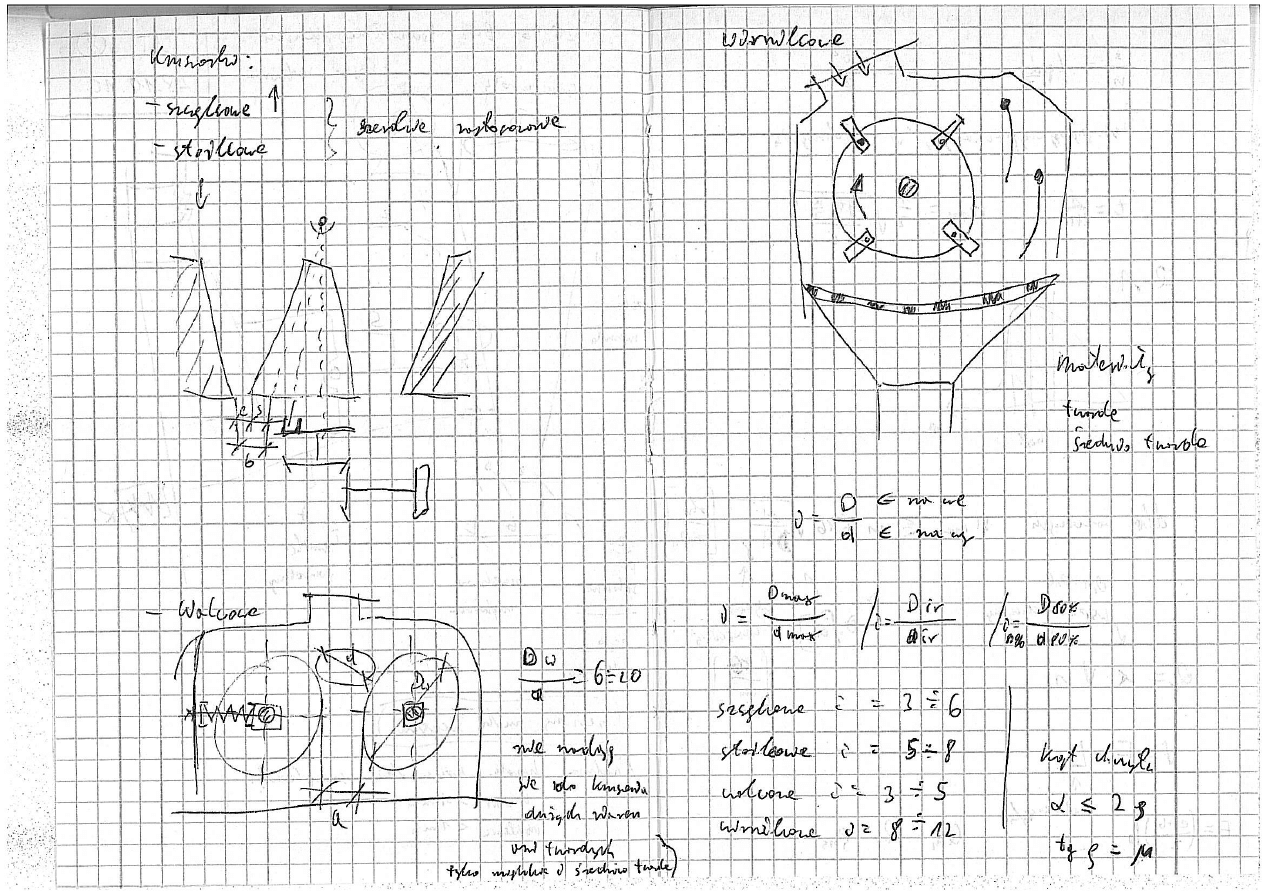 Kruszarki:
- szczękowe ↑
- stożkowe
e s
b
- Walcowe
d
Dw
a
Dw/d = 6÷20
nie nadają
się do kruszenia
dużych ziaren
ani twardych
tylko miękkie i średnio twarde)
wirnikowe
materiały
twarde
średnio twarde
i = D/d ← na we
← na wy
i = Dmax/dmax / i = Dśr/dśr / i80% = D80%/d80%
szczękowe i = 3÷6
stożkowe i = 5÷8
walcowe i = 3÷5
wirnikowe i = 8÷12
kąt chwytu
α ≤ 2ρ
tg ρ = μ